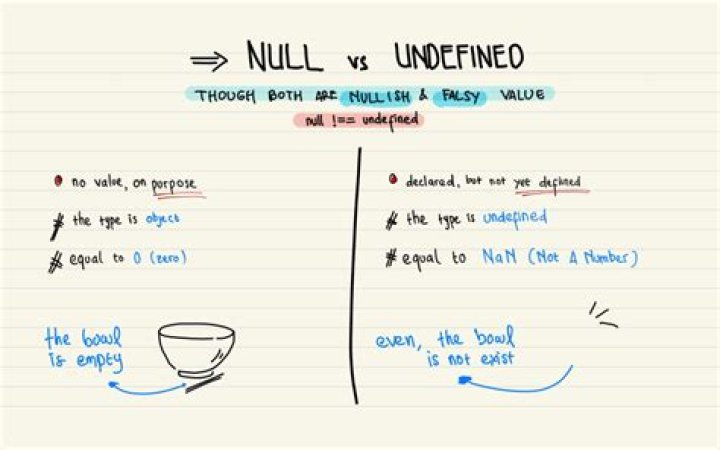 ⇒ NULL vs UNDEFINED
THOUGH BOTH ARE NULLISH & FALSY VALUE
null !== undefined
• no value, on purpose
# the type is object
# equal to 0 (zero)
the bowl
is empty
• declared, but not yet defined
# the type is undefined
# equal to NaN (Not A Number)
even, the bowl
is not exist